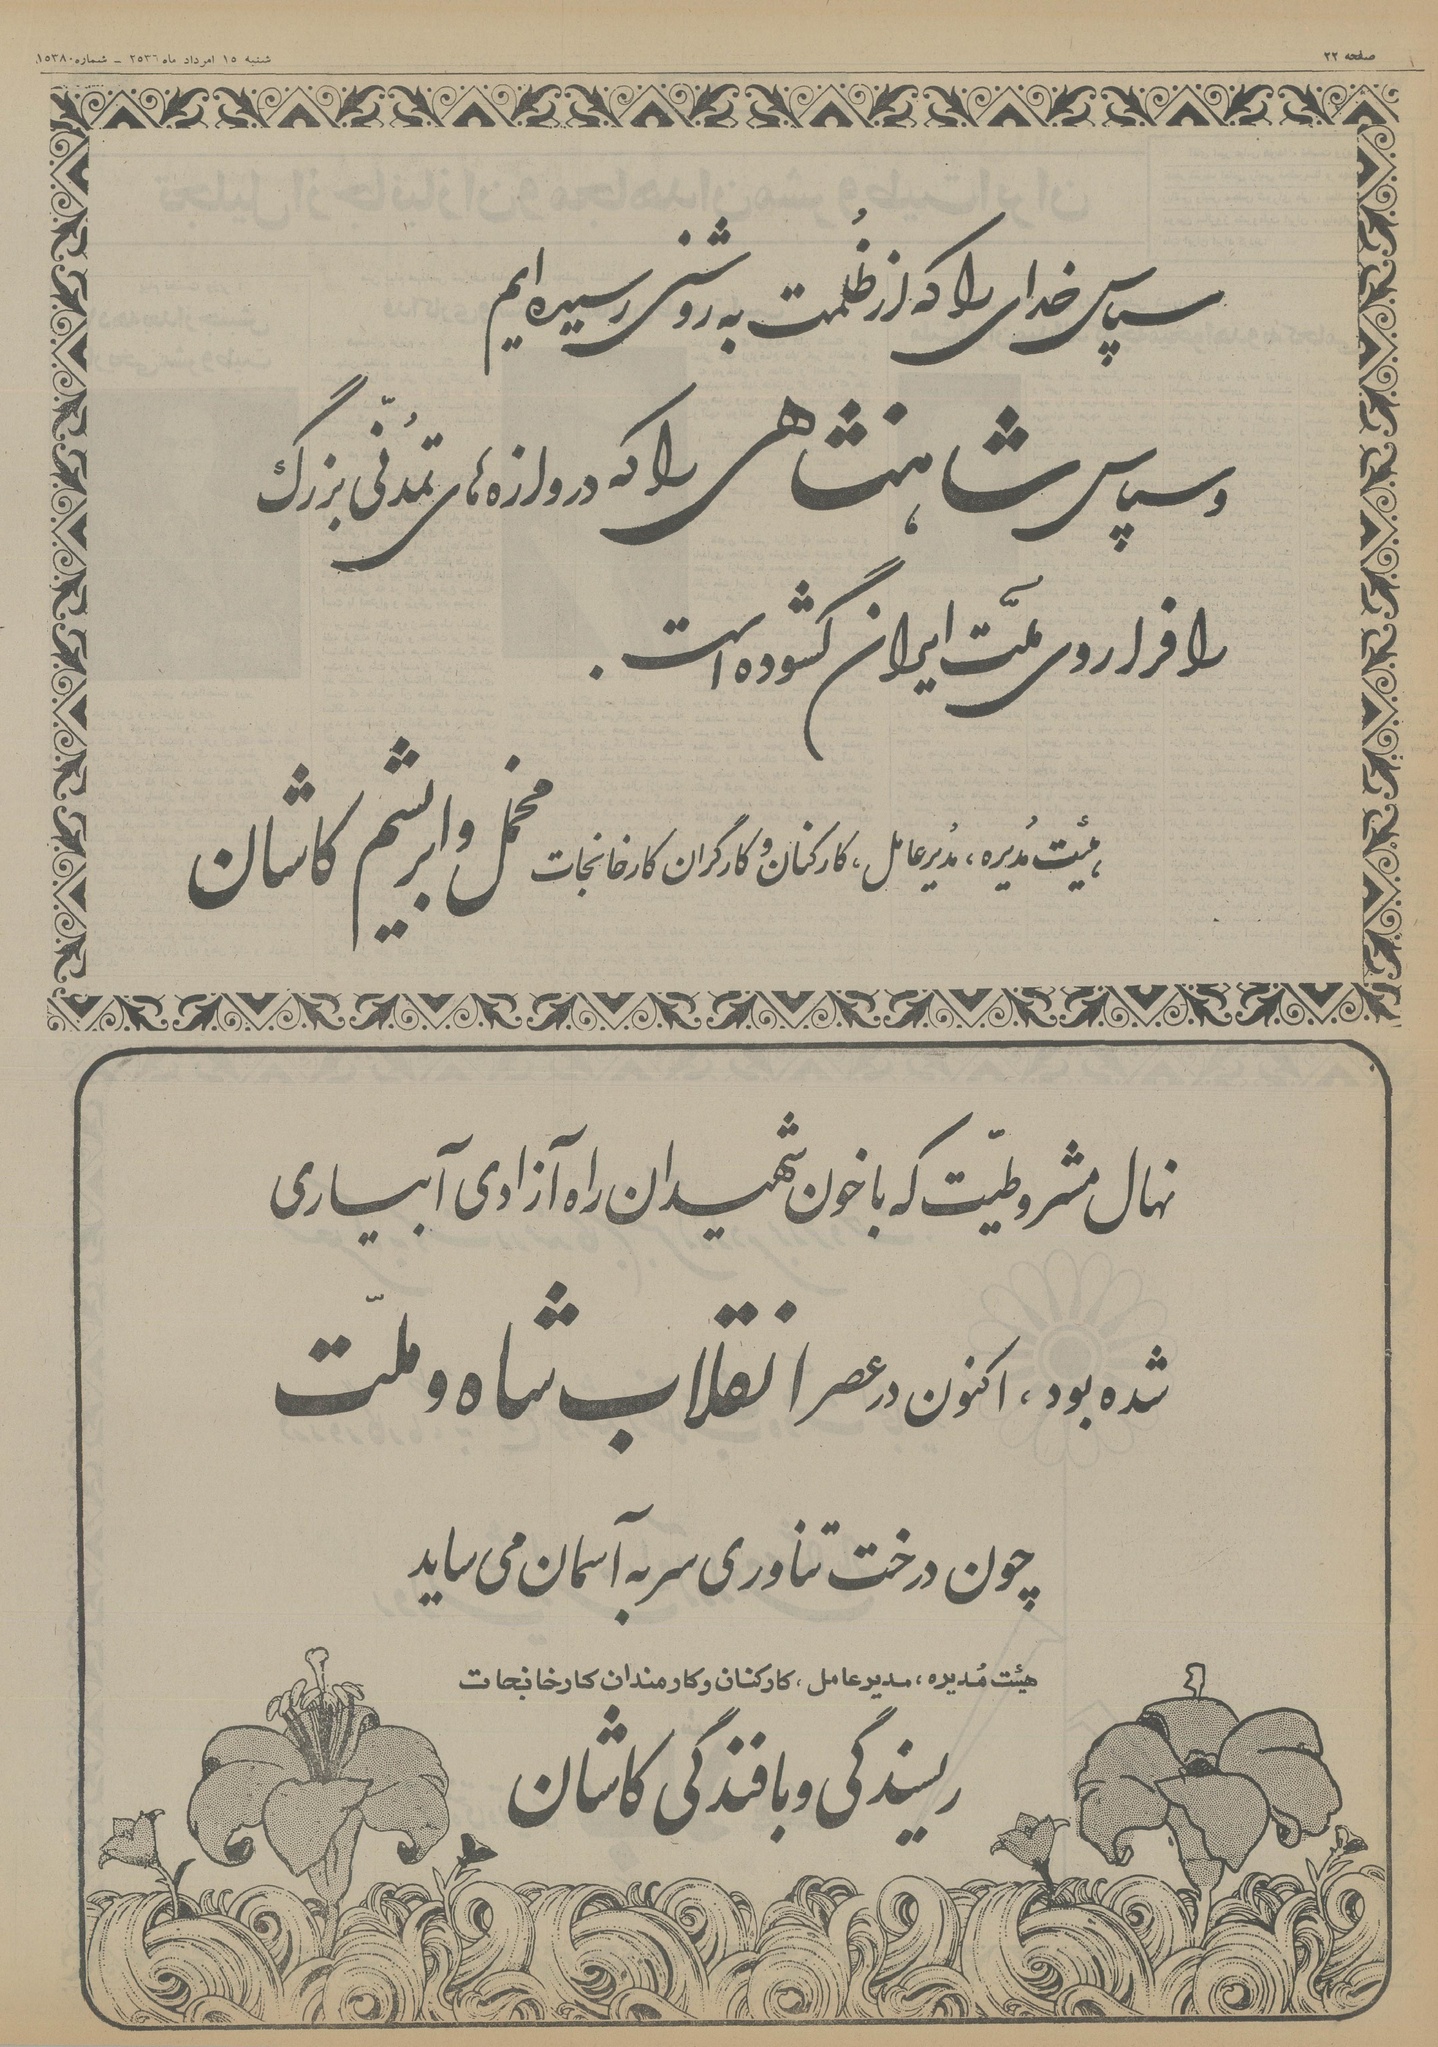 صفحه ۲۲
شنبه ۱۵ امرداد ماه ۲۵۳۶ – شماره ۱۵۳۸۰
سپاس خدای را که از ظُلمت به روشنی رسیده‌ایم
و سپاس شاهنشاهی را که دروازه‌های تمدُّنی بزرگ
را فرا روی ملّت ایران گشوده است.
هیئت مُدیره، مُدیرعامل، کارکنان و کارگران کارخانجات مخمل و ابریشم کاشان
نهال مشروطیّت که با خون شهیدان راه آزادی آبیاری
شده بود، اکنون در عصر انقلاب شاه و ملّت
چون درخت تناوری سر به آسمان می‌ساید
هیئت مُدیره، مدیرعامل، کارکنان و کارمندان کارخانجات
ریسندگی و بافندگی کاشان